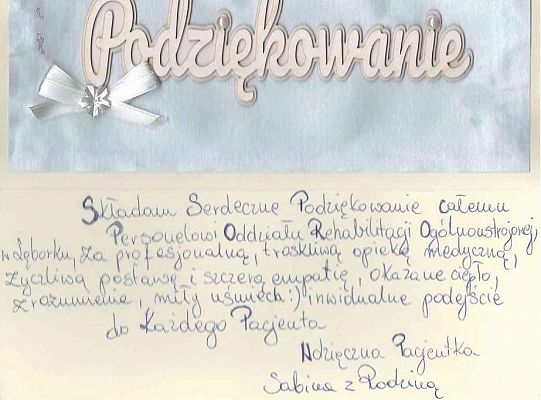 Podziękowanie
Składam Serdeczne Podziękowanie całemu
Personelowi Oddziału Rehabilitacji Ogólnoustrojowej,
w Sęborku, za profesjonalną, troskliwą opiekę medyczną,
życzliwą postawę i szczerą empatię, okazane ciepło,
zrozumienie, miły uśmiech:) inwidualne podejście
do Każdego Pacjenta
Wdzięczna Pacjentka
Sabina z Rodziną